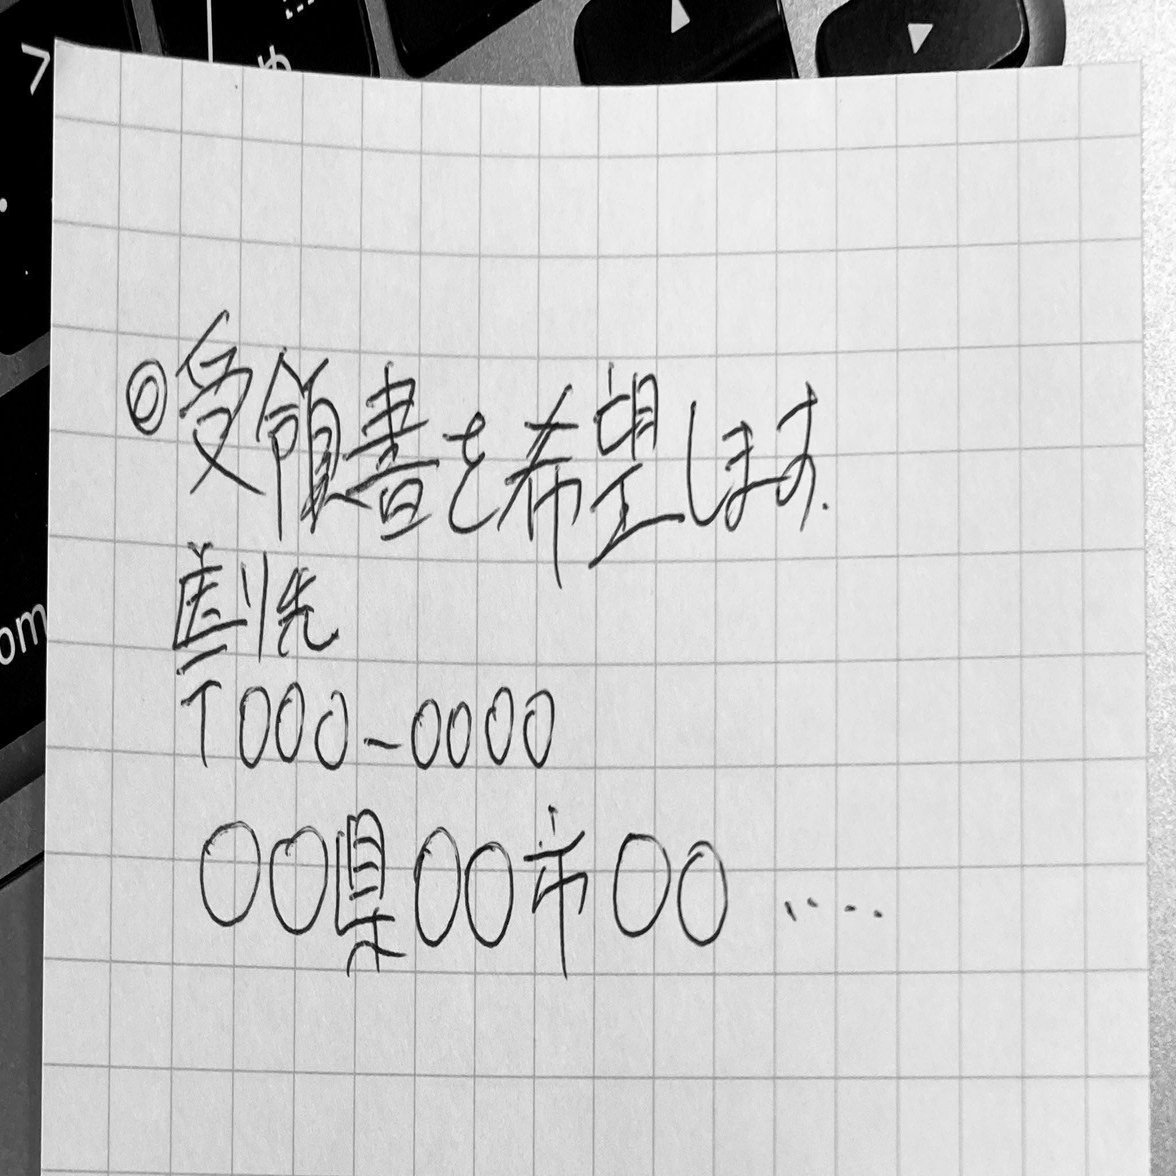 め
om
◎受領書を希望します.
〒000-0000
〇〇県〇〇市〇〇 ‥‥‥